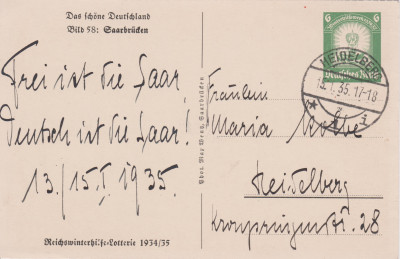 Das schöne Deutschland
Bild 58: Saarbrücken
Frei ist die Saar
Deutsch ist die Saar!
13./15.I.1935.
Reichswinterhilfe-Lotterie 1934/35
Saarbrücken
6
6
Deutsches Reich
HEIDELBERG
35.17-18
Fräulein
Maria
Heidelberg
Kronprinzenstr. 28